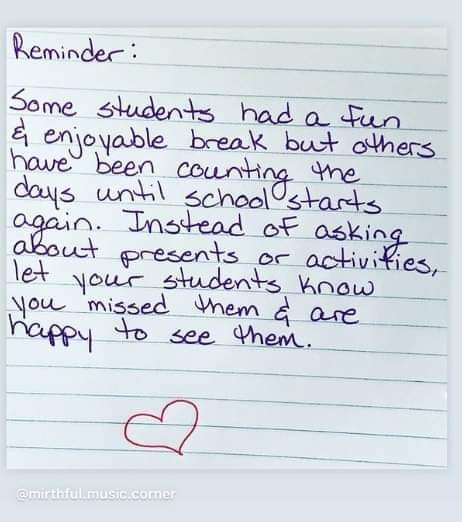 Reminder:
Some students had a fun
& enjoyable break but others
have been counting the
days until school starts
again. Instead of asking
about presents or activities,
let your students know
you missed them & are
happy to see them.
@mirthful.music.corner